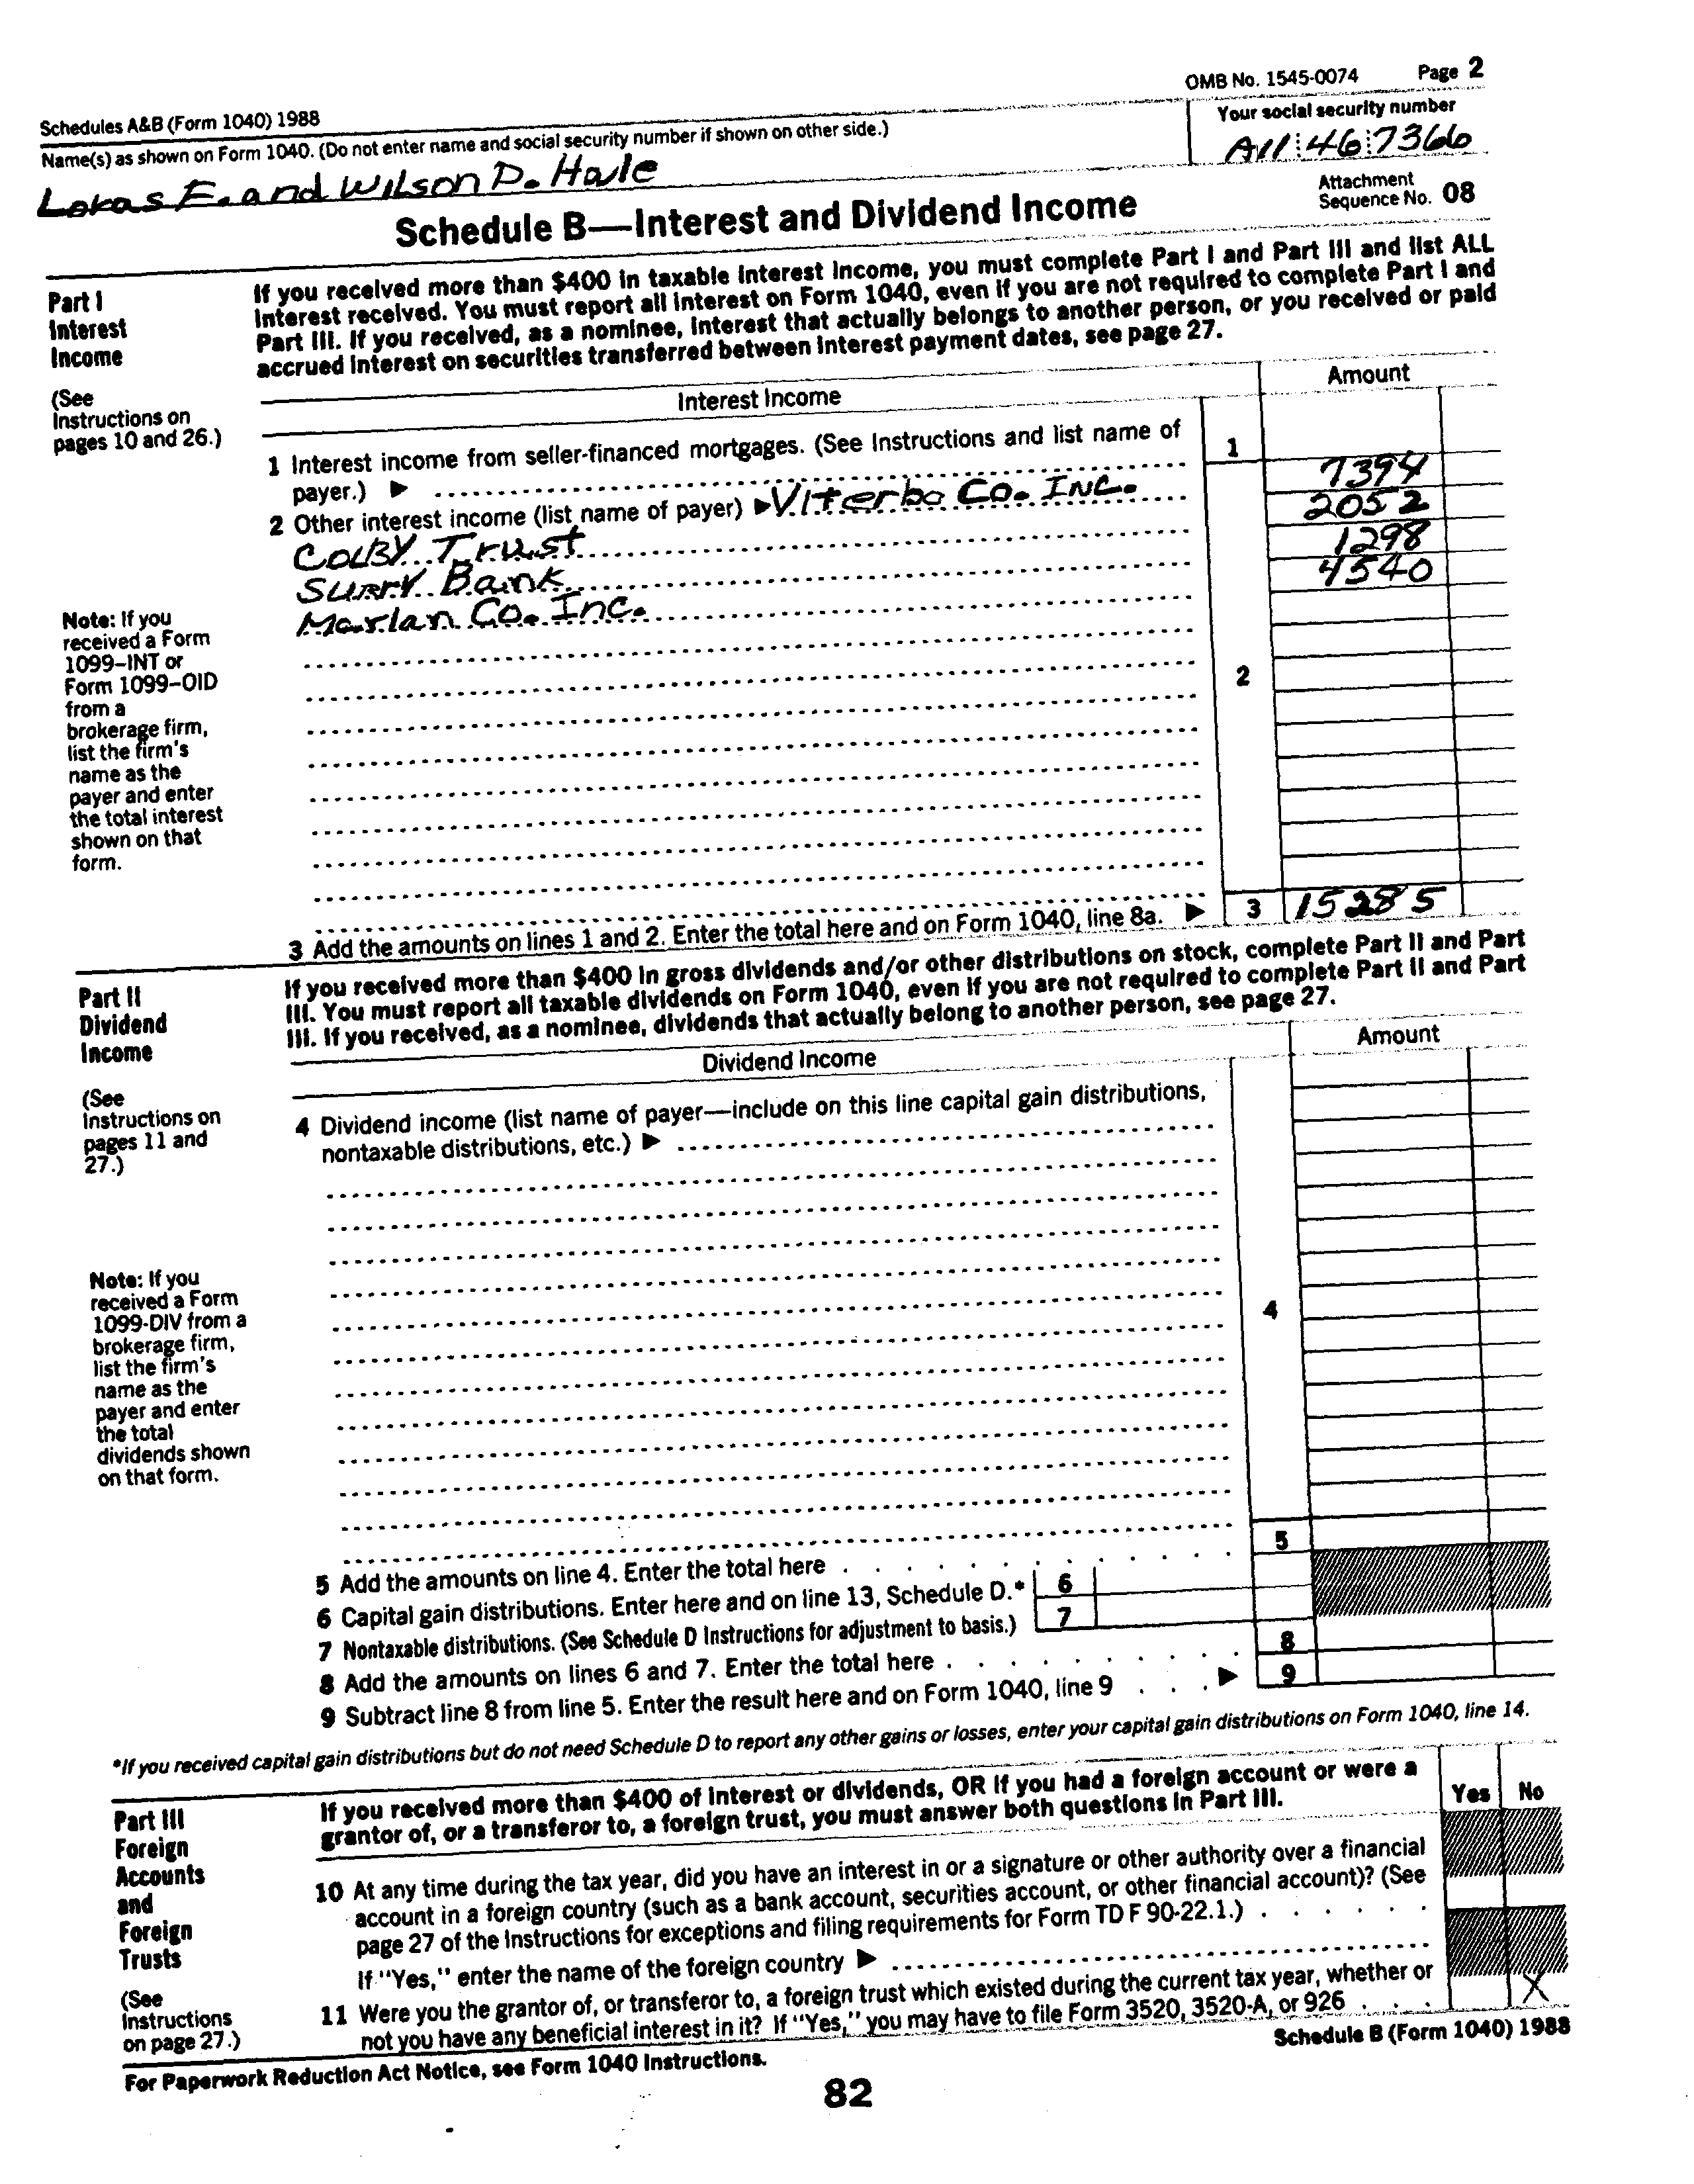 Schedules A&B (Form 1040) 1988
OMB No. 1545-0074 Page 2
Name(s) as shown on Form 1040. (Do not enter name and social security number if shown on other side.)
Your social security number
Lokas E. and Wilson D. Hale
A11 46 7366
Schedule B—Interest and Dividend Income
Attachment
Sequence No. 08
Part I
Interest
Income
(See
Instructions on
pages 10 and 26.)
If you received more than $400 in taxable interest income, you must complete Part I and Part III and list ALL
interest received. You must report all interest on Form 1040, even if you are not required to complete Part I and
Part III. If you received, as a nominee, interest that actually belongs to another person, or you received or paid
accrued interest on securities transferred between interest payment dates, see page 27.
Interest Income
Amount
1 Interest income from seller-financed mortgages. (See Instructions and list name of
payer.) ▶
1
2 Other interest income (list name of payer) ▶ Viterbo Co. Inc. 7394
Colby Trust 2052
Surry Bank 1298
Marlan Co. Inc. 4540
2
Note: If you
received a Form
1099–INT or
Form 1099–OID
from a
brokerage firm,
list the firm's
name as the
payer and enter
the total interest
shown on that
form.
3 Add the amounts on lines 1 and 2. Enter the total here and on Form 1040, line 8a. ▶ 3 15285
Part II
Dividend
Income
(See
Instructions on
pages 11 and
27.)
If you received more than $400 in gross dividends and/or other distributions on stock, complete Part II and Part
III. You must report all taxable dividends on Form 1040, even if you are not required to complete Part II and Part
III. If you received, as a nominee, dividends that actually belong to another person, see page 27.
Dividend Income
Amount
4 Dividend income (list name of payer—include on this line capital gain distributions,
nontaxable distributions, etc.) ▶
4
Note: If you
received a Form
1099-DIV from a
brokerage firm,
list the firm's
name as the
payer and enter
the total
dividends shown
on that form.
5 Add the amounts on line 4. Enter the total here . . . . . . . . . . . . 5
6 Capital gain distributions. Enter here and on line 13, Schedule D.* 6
7 Nontaxable distributions. (See Schedule D Instructions for adjustment to basis.) 7
8 Add the amounts on lines 6 and 7. Enter the total here . . . . . . . . . 8
9 Subtract line 8 from line 5. Enter the result here and on Form 1040, line 9 . . . ▶ 9
*If you received capital gain distributions but do not need Schedule D to report any other gains or losses, enter your capital gain distributions on Form 1040, line 14.
Part III
Foreign
Accounts
and
Foreign
Trusts
(See
Instructions
on page 27.)
If you received more than $400 of interest or dividends, OR if you had a foreign account or were a
grantor of, or a transferor to, a foreign trust, you must answer both questions in Part III.
Yes No
10 At any time during the tax year, did you have an interest in or a signature or other authority over a financial
account in a foreign country (such as a bank account, securities account, or other financial account)? (See
page 27 of the Instructions for exceptions and filing requirements for Form TD F 90-22.1.) . . . . . .
If "Yes," enter the name of the foreign country ▶
11 Were you the grantor of, or transferor to, a foreign trust which existed during the current tax year, whether or
not you have any beneficial interest in it? If "Yes," you may have to file Form 3520, 3520-A, or 926 . . . X
For Paperwork Reduction Act Notice, see Form 1040 Instructions.
Schedule B (Form 1040) 1988
82